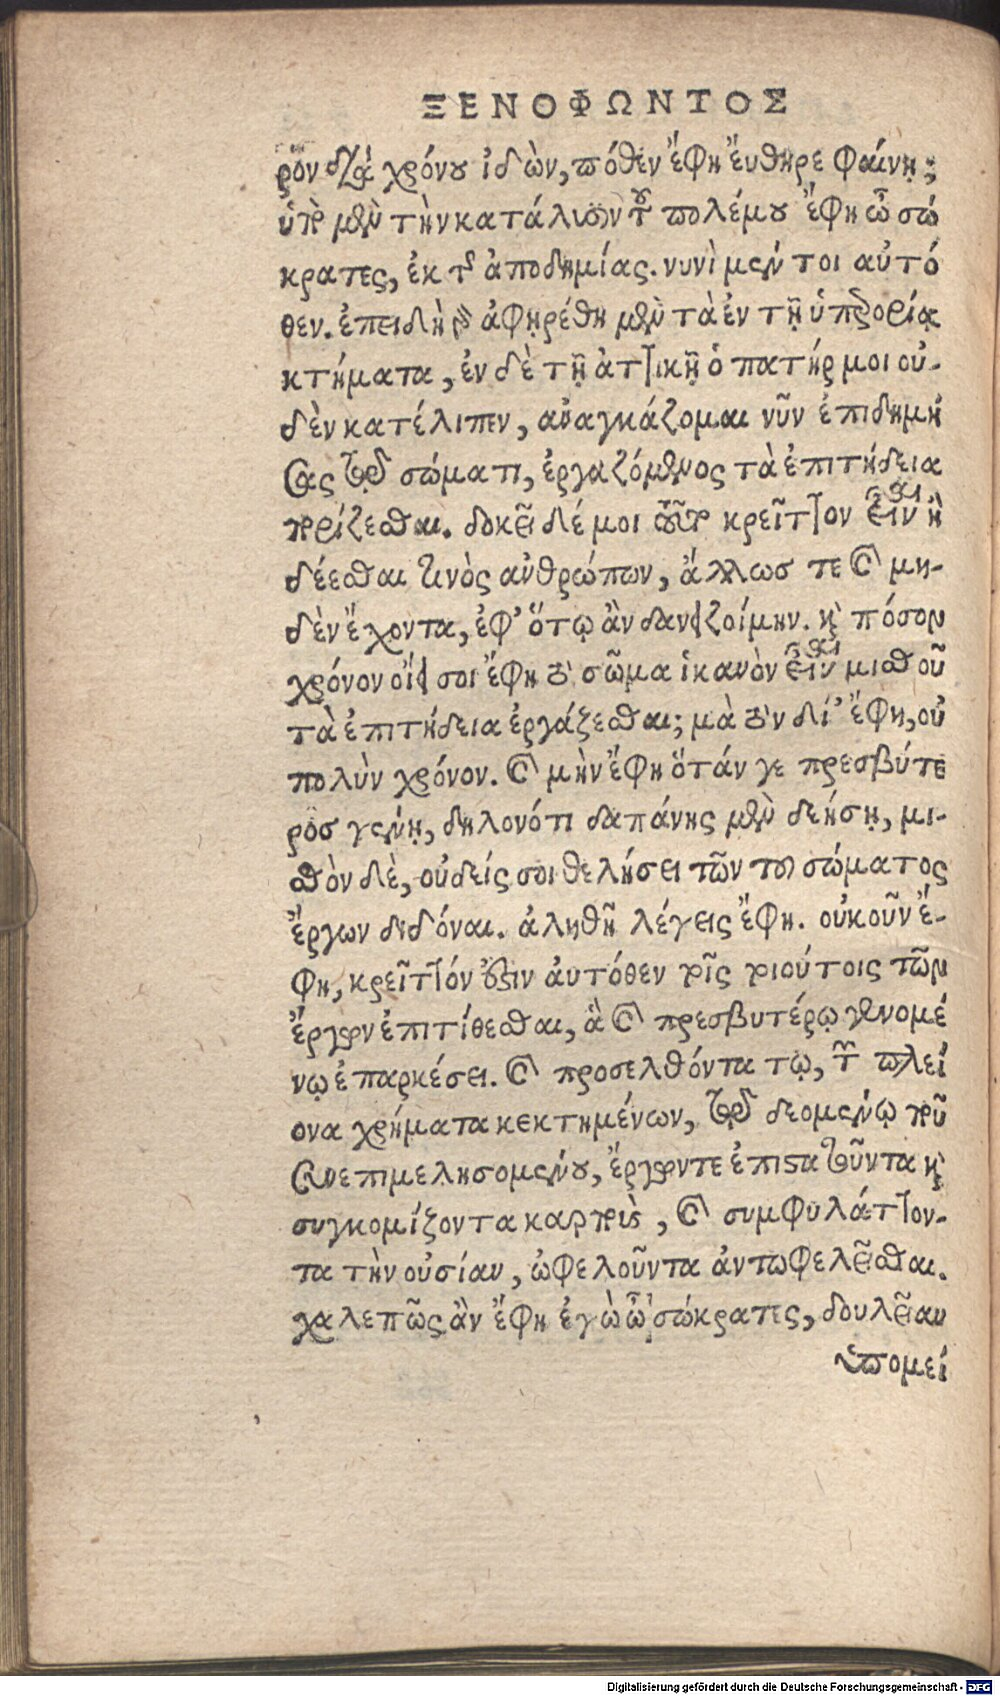 ΞΕΝΟΦΩΝΤΟΣ
ρον διὰ χρόνου ἰδὼν, πόθεν ἔφη ἔυθηρε φαίνῃ;
ὑπὸ μὲν τὴν κατάλυσιν τοῦ πολέμου ἔφη ὦ σώ
κρατες, ἐκ τῆς ἀποδημίας. νυνὶ μέν τοι αὐτό
θεν. ἐπειδὴ γὰρ ἀφῃρέθη μὲν τὰ ἐν τῇ ὑπερορίᾳ
κτήματα, ἐν δὲ τῇ ἀττικῇ ὁ πατήρ μοι οὐ-
δὲν κατέλιπεν, ἀναγκάζομαι νῦν ἐπιδημή
σας τῷ σώματι, ἐργαζόμενος τὰ ἐπιτήδεια
πορίζεσθαι. δοκεῖ δέ μοι τοῦτο κρεῖττον εἶναι ἢ
δέεσθαι τινὸς ἀνθρώπων, ἄλλωσ τε καὶ μη-
δὲν ἔχοντα, ἐφ' ὅτῳ ἂν δανειζοίμην. καὶ πόσον
χρόνον οἴει σοι ἔφη τὸ σῶμα ἱκανὸν εἶναι μισθοῦ
τὰ ἐπιτήδεια ἐργάζεσθαι; μὰ τὸν δί' ἔφη, οὐ
πολὺν χρόνον. καὶ μὴν ἔφη ὅτάν γε πρεσβύτε
ρος γένῃ, δηλονότι δαπάνης μὲν δεήσῃ, μι-
σθὸν δὲ, οὐδείς σοι θελήσει τῶν τοῦ σώματος
ἔργων διδόναι. ἀληθῆ λέγεις ἔφη. οὐκοῦν ἔ-
φη, κρεῖττόν ἐστιν ἀυτόθεν τοῖς τοιούτοις τῶν
ἔργων ἐπιτίθεσθαι, ἃ καὶ πρεσβυτέρῳ γενομέ
νῳ ἐπαρκέσει. καὶ προσελθόντα τῳ, τῶν πλεί
ονα χρήματα κεκτημένων, τῷ δεομένῳ τοῦ
συνεπιμελησομένου, ἔργων τε ἐπιστατοῦντα καὶ
συγκομίζοντα καρποὺς, καὶ συμφυλάττον-
τα τὴν οὐσίαν, ὠφελοῦντα ἀντωφελεῖσθαι.
χαλεπῶς ἂν ἔφη ἐγὼ ὦ σώκρατες, δουλείαν
ὑπομεί
Digitalisierung gefördert durch die Deutsche Forschungsgemeinschaft - DFG